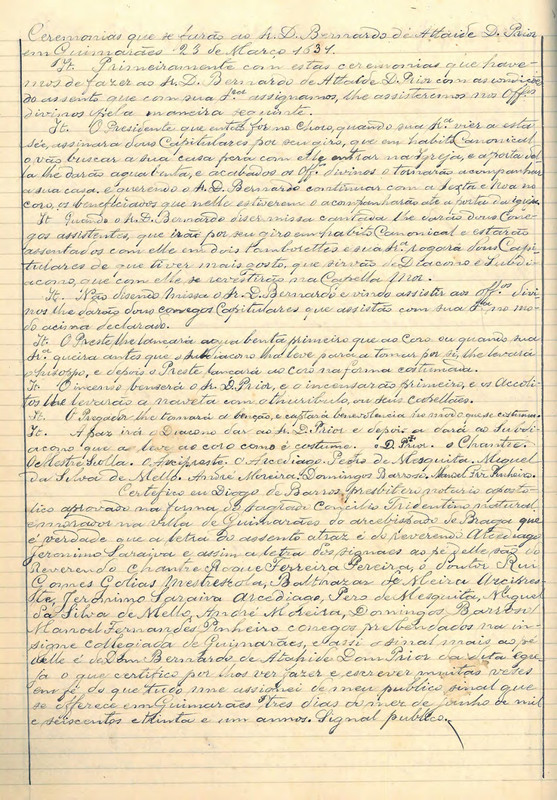 Ceremonias que se farão ao Sr. D. Bernardo de Attaide D. Prior
em Guimarães 23 de Março 1631.
It. Primeiramente com estas ceremonias que have-
mos de fazer ao Sr. D. Bernardo de Attaide D. Prior com as condições
do assento que com sua Sria assignamos, lhe assisteremos nos Offos
divinos pela maneira seguinte.
It. O Presidente que então for no Choro, quando sua Sra vier a esta
sée, assinara dous Capitulares por seu giro, que em habito Canonical
o vão buscar a sua casa pera com elle entrar na Igreja, e a porta del-
la lhe darão agua benta, e acabados os Off. divinos o tornarão acompanhar
a sua casa, e querendo o Sr. D. Bernardo continuar com a sexta e noa no
coro, os beneficiados que nelle estiverem o acompanharão até a porta da igreja.
It. Quando o Sr. D. Bernardo disser missa cantada lhe darão dous Cone-
gos assistentes, que irão por seu giro em habito Canonical e estarão
assentados com elle em dois tamboretes e sua Sra rogará dous Capi-
tulares de que tiver mais gosto, que sirvão de Diacono e Subdi-
acono, que com elle se revestirão na Capella Mor.
It. Não disendo missa o Sr. D. Bernardo e vindo assistir aos offos divi-
nos lhe darão dous conegos Capitulares que assistão com sua Sria no mo-
do acima declarado.
It. O Preste lhe lancará agua benta primeiro que ao coro ou quando sua
Sra queira antes que o subdiacono lha leve para a tomar por si, lhe levará
o hisopo, e depois o Preste lancará ao coro na forma costumada.
It. O incenso benserá o Sr. D. Prior, e o incensarão primeiro, e os Accoli-
tos lhe levarão a naveta com o thuribulo, ou seus capellães.
It. O Pregador lhe tomará a benção, e captará benevolencia no modo que se costuma.
It. A paz irá o Diacono dar ao Sr. D. Prior e depois a dará ao Subdi-
acono que a leve ao coro como é costume. D. Prior. o Chantre.
O Mestre scolla. O Arcipreste. O Arcediago. Pedro de Mesquita. Miguel
da Silva de Mello. André Moreira, Domingos Barroso. Manoel Frz Pinheiro.
Certifico eu Diogo de Barros, presbitero notario aposto-
lico aprovado na forma do sagrado Concilio Tridentino natural
e morador na villa de Guimarães do arcebispado de Braga que
é verdade que a letra do assento atraz é do Reverendo Arcediago
Jeronimo Saraiva e assim a letra dos signaes ao pé delle são do
Reverendo Chantre Roque Ferreira Pereira, o doutor Rui
Gomes Golias Mestreskola, Balthazar de Meira Arcipres-
te, Jeronimo Saraiva Arcediago, Pero de Mesquita, Miguel
da Silva de Mello, André Moreira, Domingos Barroso,
Manoel Fernandes Pinheiro conegos prebendados na in-
signe collegiada de Guimarães, e assi o sinal mais ao pé
delle é de Dom Bernardo de Atahide Dom Prior da dita egre-
ja o que certifico por lhos ver fazer e escrever muitas vezes
em fé do que tudo me assignei de meu publico sinal que
se offerece em Guimarães tres dias do mez de Junho de mil
e seiscentos e trinta e um annos. Signal publico.